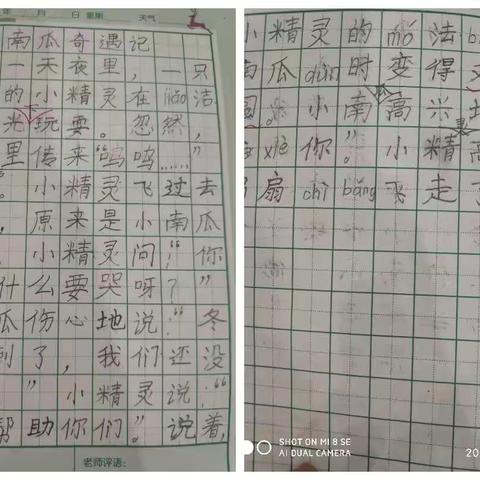 月 日 星期 天气
南瓜奇遇记
一天夜里，一只
的小精灵在jiǎo洁
光玩耍。忽然，
里传来“呜呜……”
。小精灵飞过去
，原来是小南瓜
。小精灵问：“你
什么要哭呀？”
瓜伤心地说：“冬
到了，我们还没
”小精灵说：“
帮助你们”。说着，
老师评语：
小精灵的mó法b
南瓜dùn时变得又
圆。小南瓜高兴地
xiè你”。小精灵高
扇chì bǎng飞走了
SHOT ON MI 8 SE
AI DUAL CAMERA
20